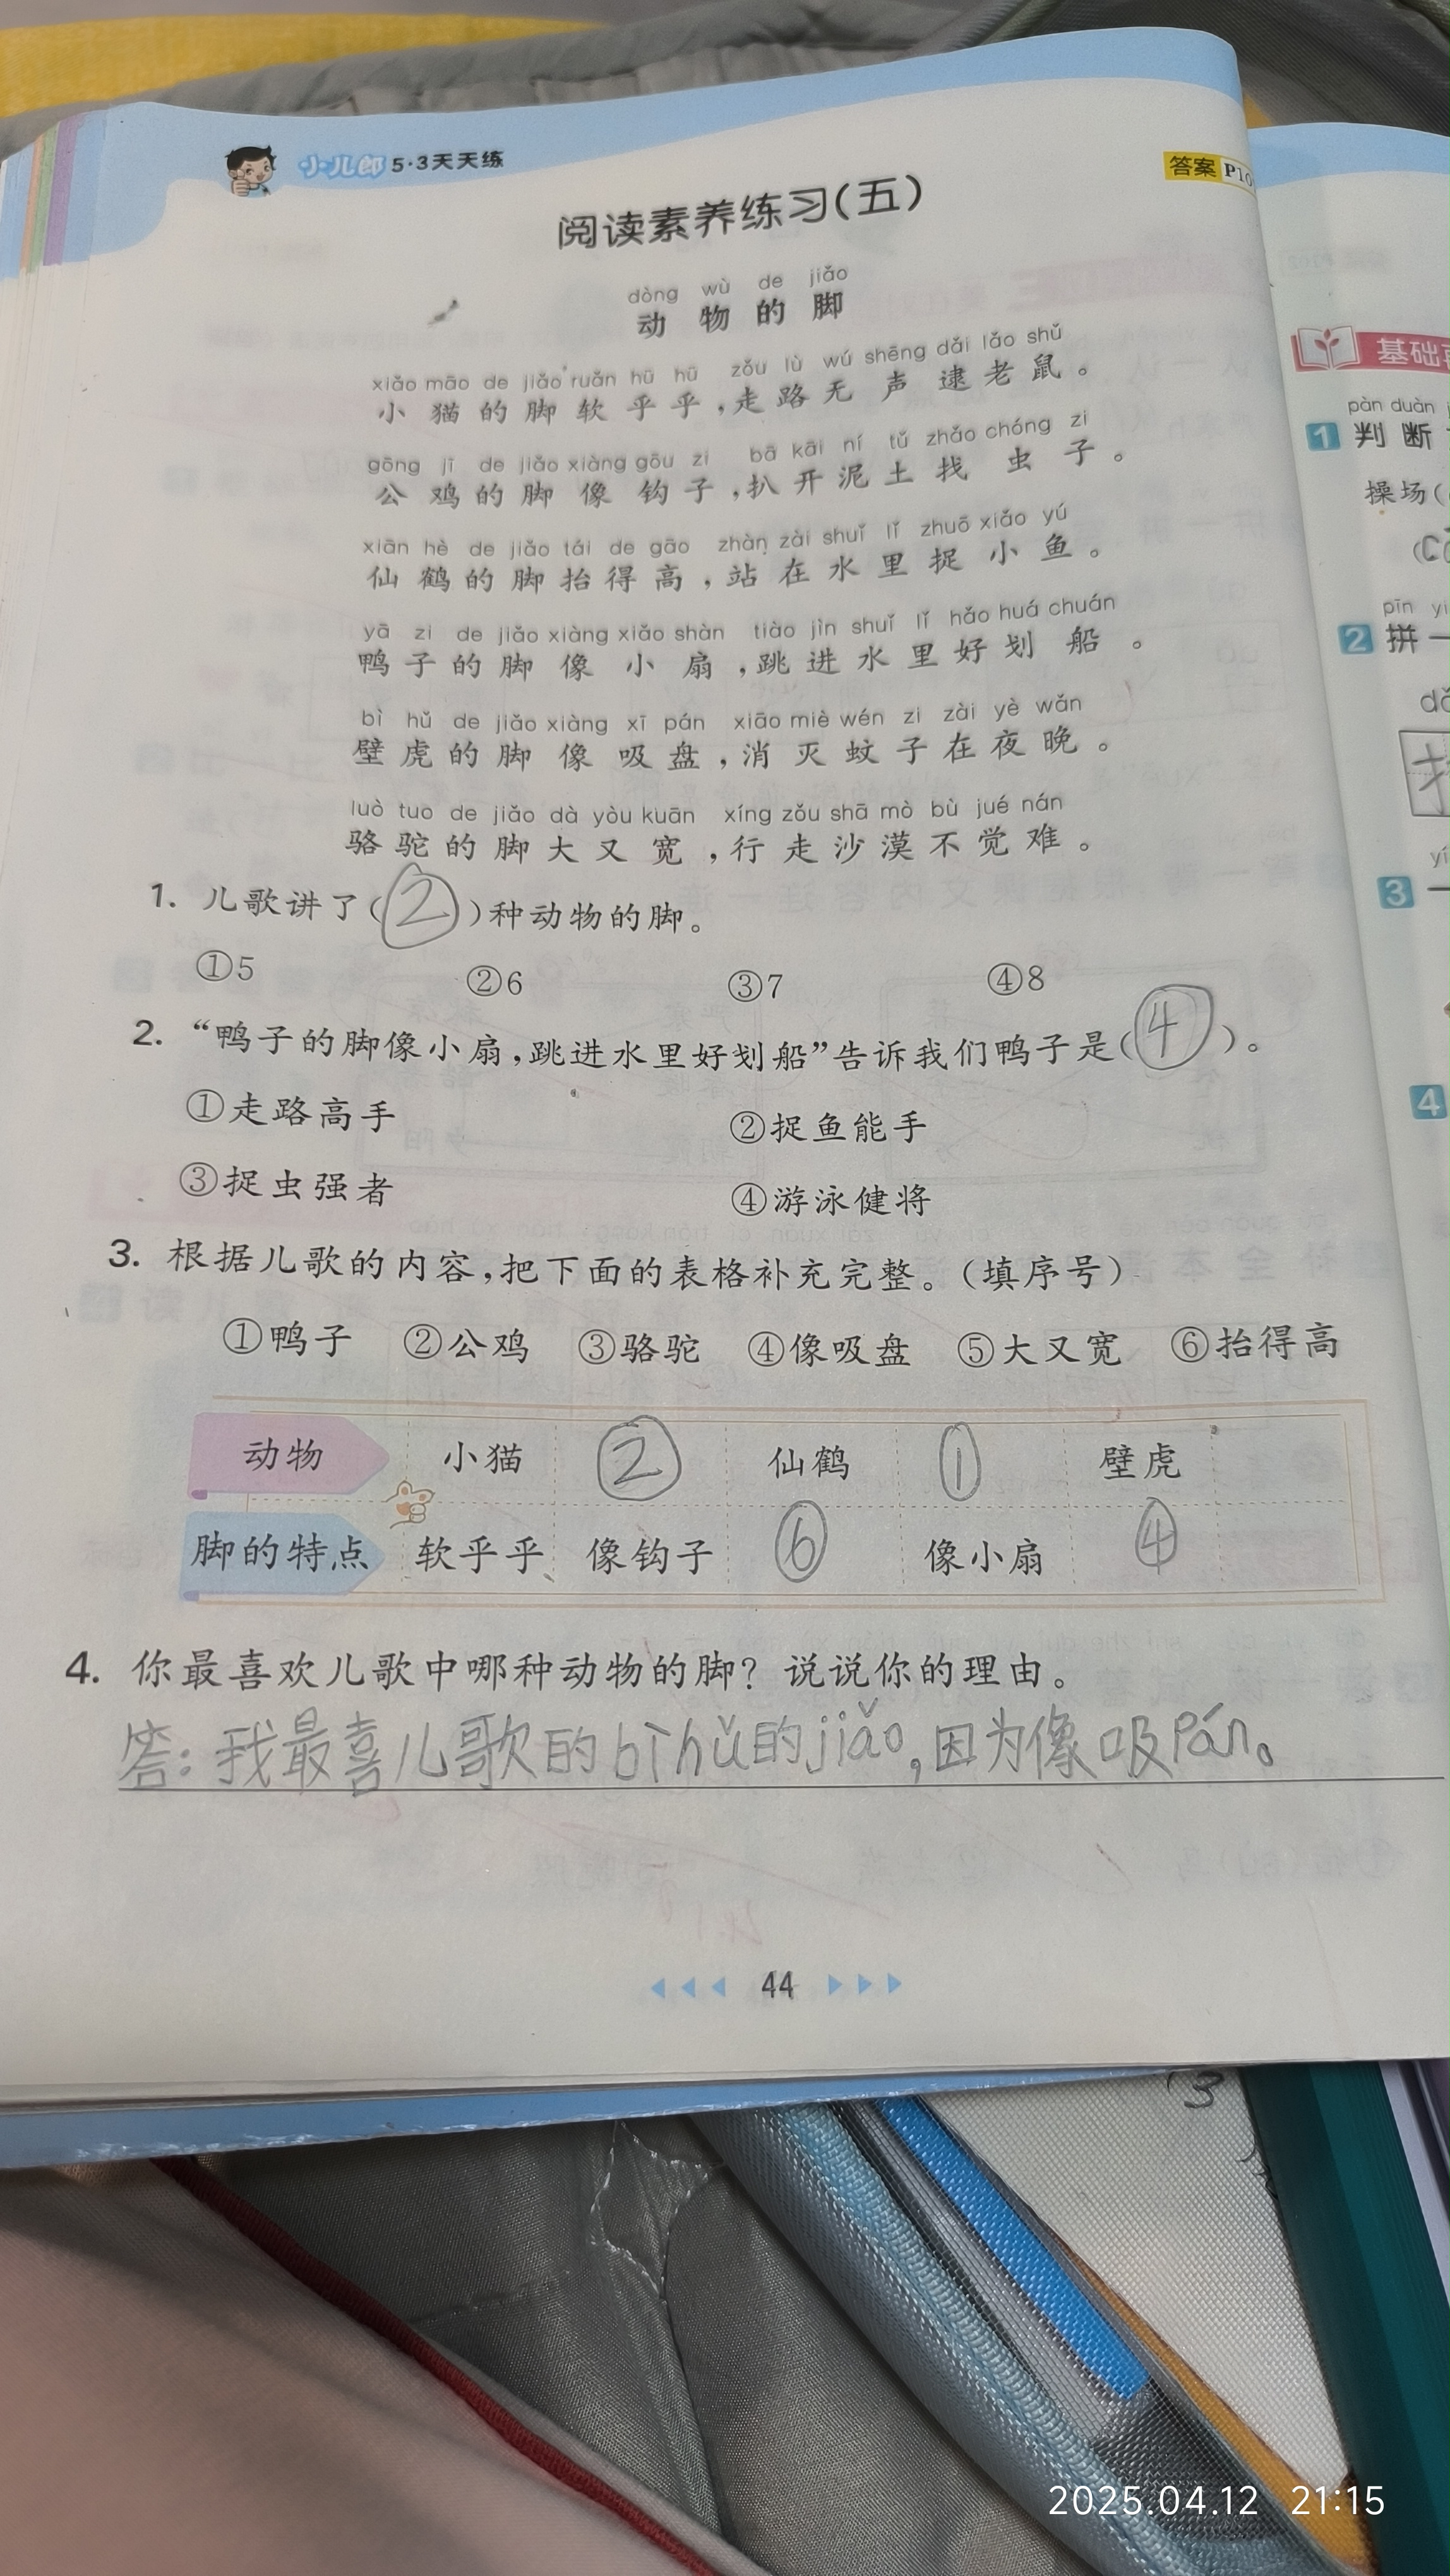 小儿郎 5·3天天练
答案 P10
阅读素养练习(五)
dòng wù de jiǎo
动物的脚
xiǎo māo de jiǎo ruǎn hū hū zǒu lù wú shēng dǎi lǎo shǔ
小猫的脚软乎乎,走路无声逮老鼠。
gōng jī de jiǎo xiàng gōu zi bā kāi ní tǔ zhǎo chóng zi
公鸡的脚像钩子,扒开泥土找虫子。
xiān hè de jiǎo tái de gāo zhàn zài shuǐ lǐ zhuō xiǎo yú
仙鹤的脚抬得高,站在水里捉小鱼。
yā zi de jiǎo xiàng xiǎo shàn tiào jìn shuǐ lǐ hǎo huá chuán
鸭子的脚像小扇,跳进水里好划船。
bì hǔ de jiǎo xiàng xī pán xiāo miè wén zi zài yè wǎn
壁虎的脚像吸盘,消灭蚊子在夜晚。
luò tuo de jiǎo dà yòu kuān xíng zǒu shā mò bù jué nán
骆驼的脚大又宽,行走沙漠不觉难。
1. 儿歌讲了(②)种动物的脚。
①5 ②6 ③7 ④8
2. “鸭子的脚像小扇,跳进水里好划船”告诉我们鸭子是(④)。
①走路高手 ②捉鱼能手
③捉虫强者 ④游泳健将
3. 根据儿歌的内容,把下面的表格补充完整。(填序号)
①鸭子 ②公鸡 ③骆驼 ④像吸盘 ⑤大又宽 ⑥抬得高
动物 小猫 ② 仙鹤 ① 壁虎
脚的特点 软乎乎 像钩子 ⑥ 像小扇 ④
4. 你最喜欢儿歌中哪种动物的脚？说说你的理由。
答:我最喜儿歌的bìhǔ的jiǎo,因为像吸Pán。
44
基础
pàn duàn
1 判断
操场(
pīn yi
2 拼一
3
4
3
2025.04.12 21:15